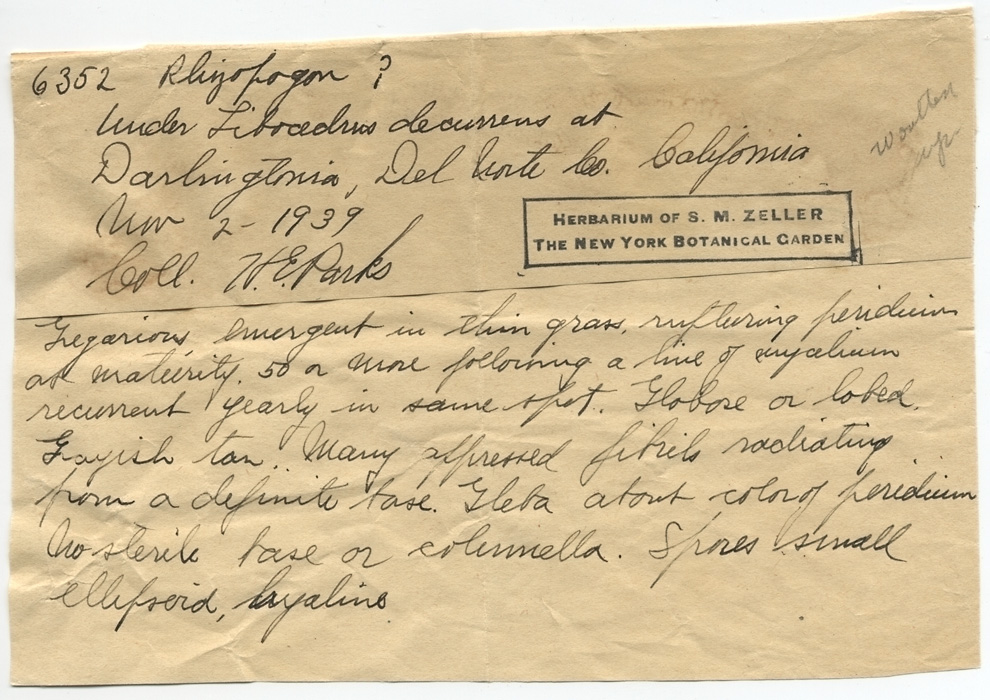 6352 Rhizopogon ?
Under Libocedrus decurrens at
Darlingtonia, Del Norte Co. California
Nov 2-1939
Coll. H.E. Parks
HERBARIUM OF S. M. ZELLER
THE NEW YORK BOTANICAL GARDEN
Gregarious, emergent in thin grass, rupturing peridium
at maturity. 50 or more following a line of mycelium
recurrent yearly in same spot. Globose or lobed.
Grayish tan. Many appressed fibrils radiating
from a definite base. Gleba about color of peridium
No sterile base or columella. Spores small
ellipsoid, hyaline